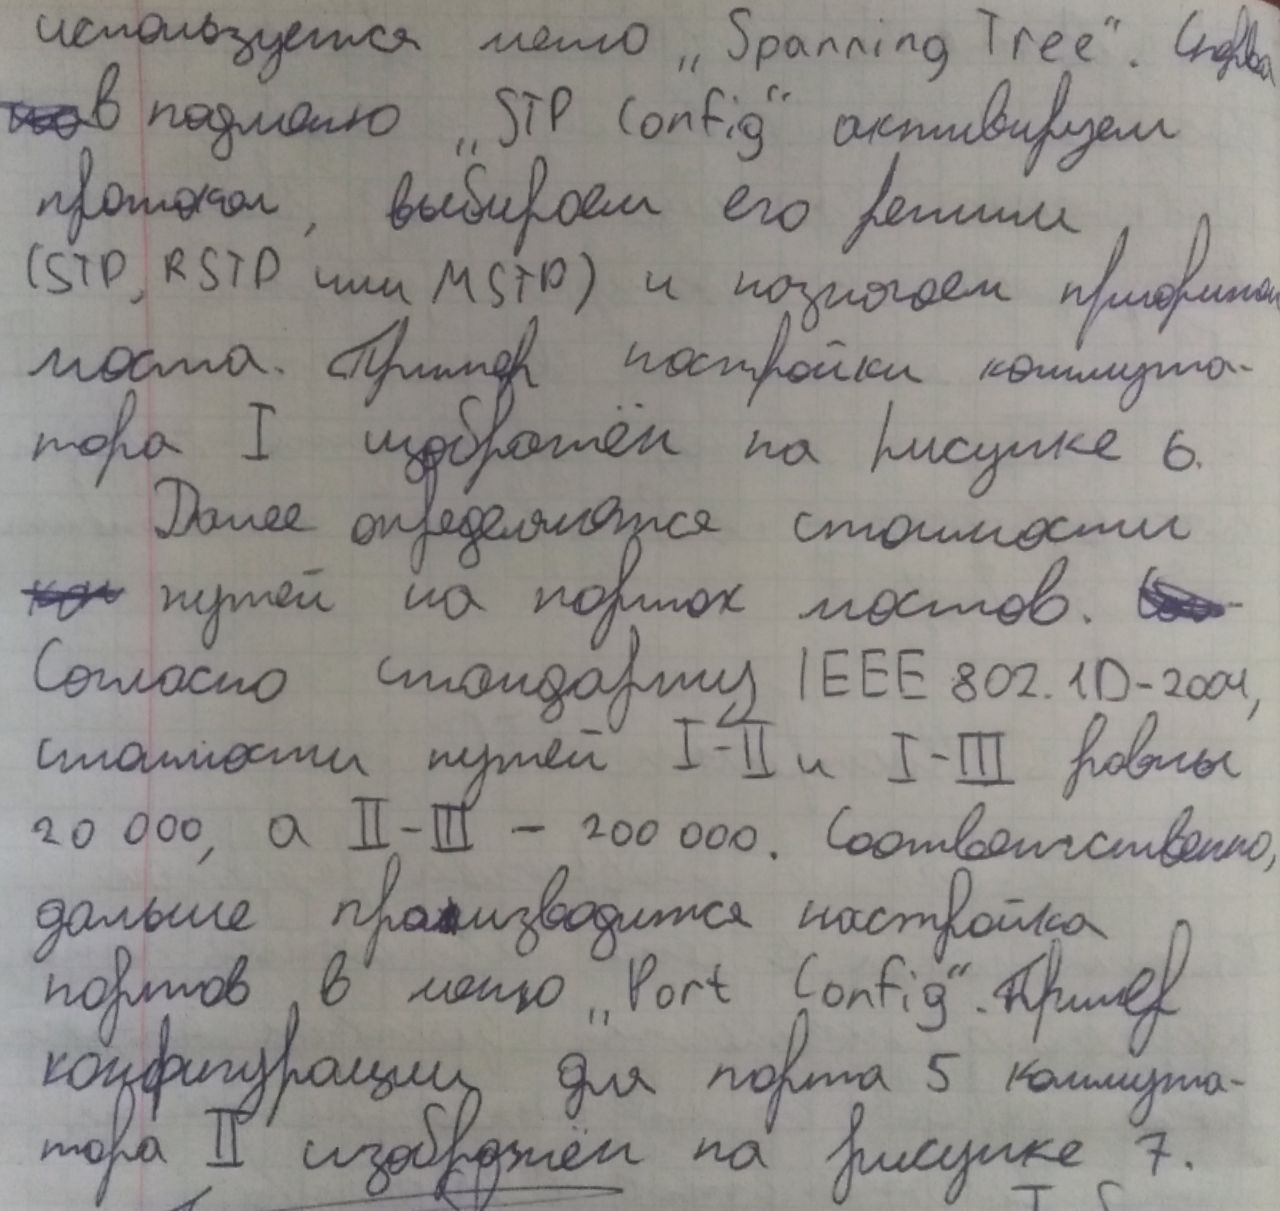 используется меню „Spanning Tree“. Сперва
в подменю „STP Config“ активируем
протокол, выбираем его режим
(STP, RSTP или MSTP) и назначаем приоритет
моста. Пример настройки коммута-
тора I изображён на рисунке 6.
Далее определяются стоимости
путей на портах мостов.
Согласно стандарту IEEE 802.1D-2004,
стоимости путей I-II и I-III равны
20 000, а II-III - 200 000. Соответственно,
дальше производится настройка
портов в меню „Port Config“. Пример
конфигурации для порта 5 коммута-
тора II изображён на рисунке 7.